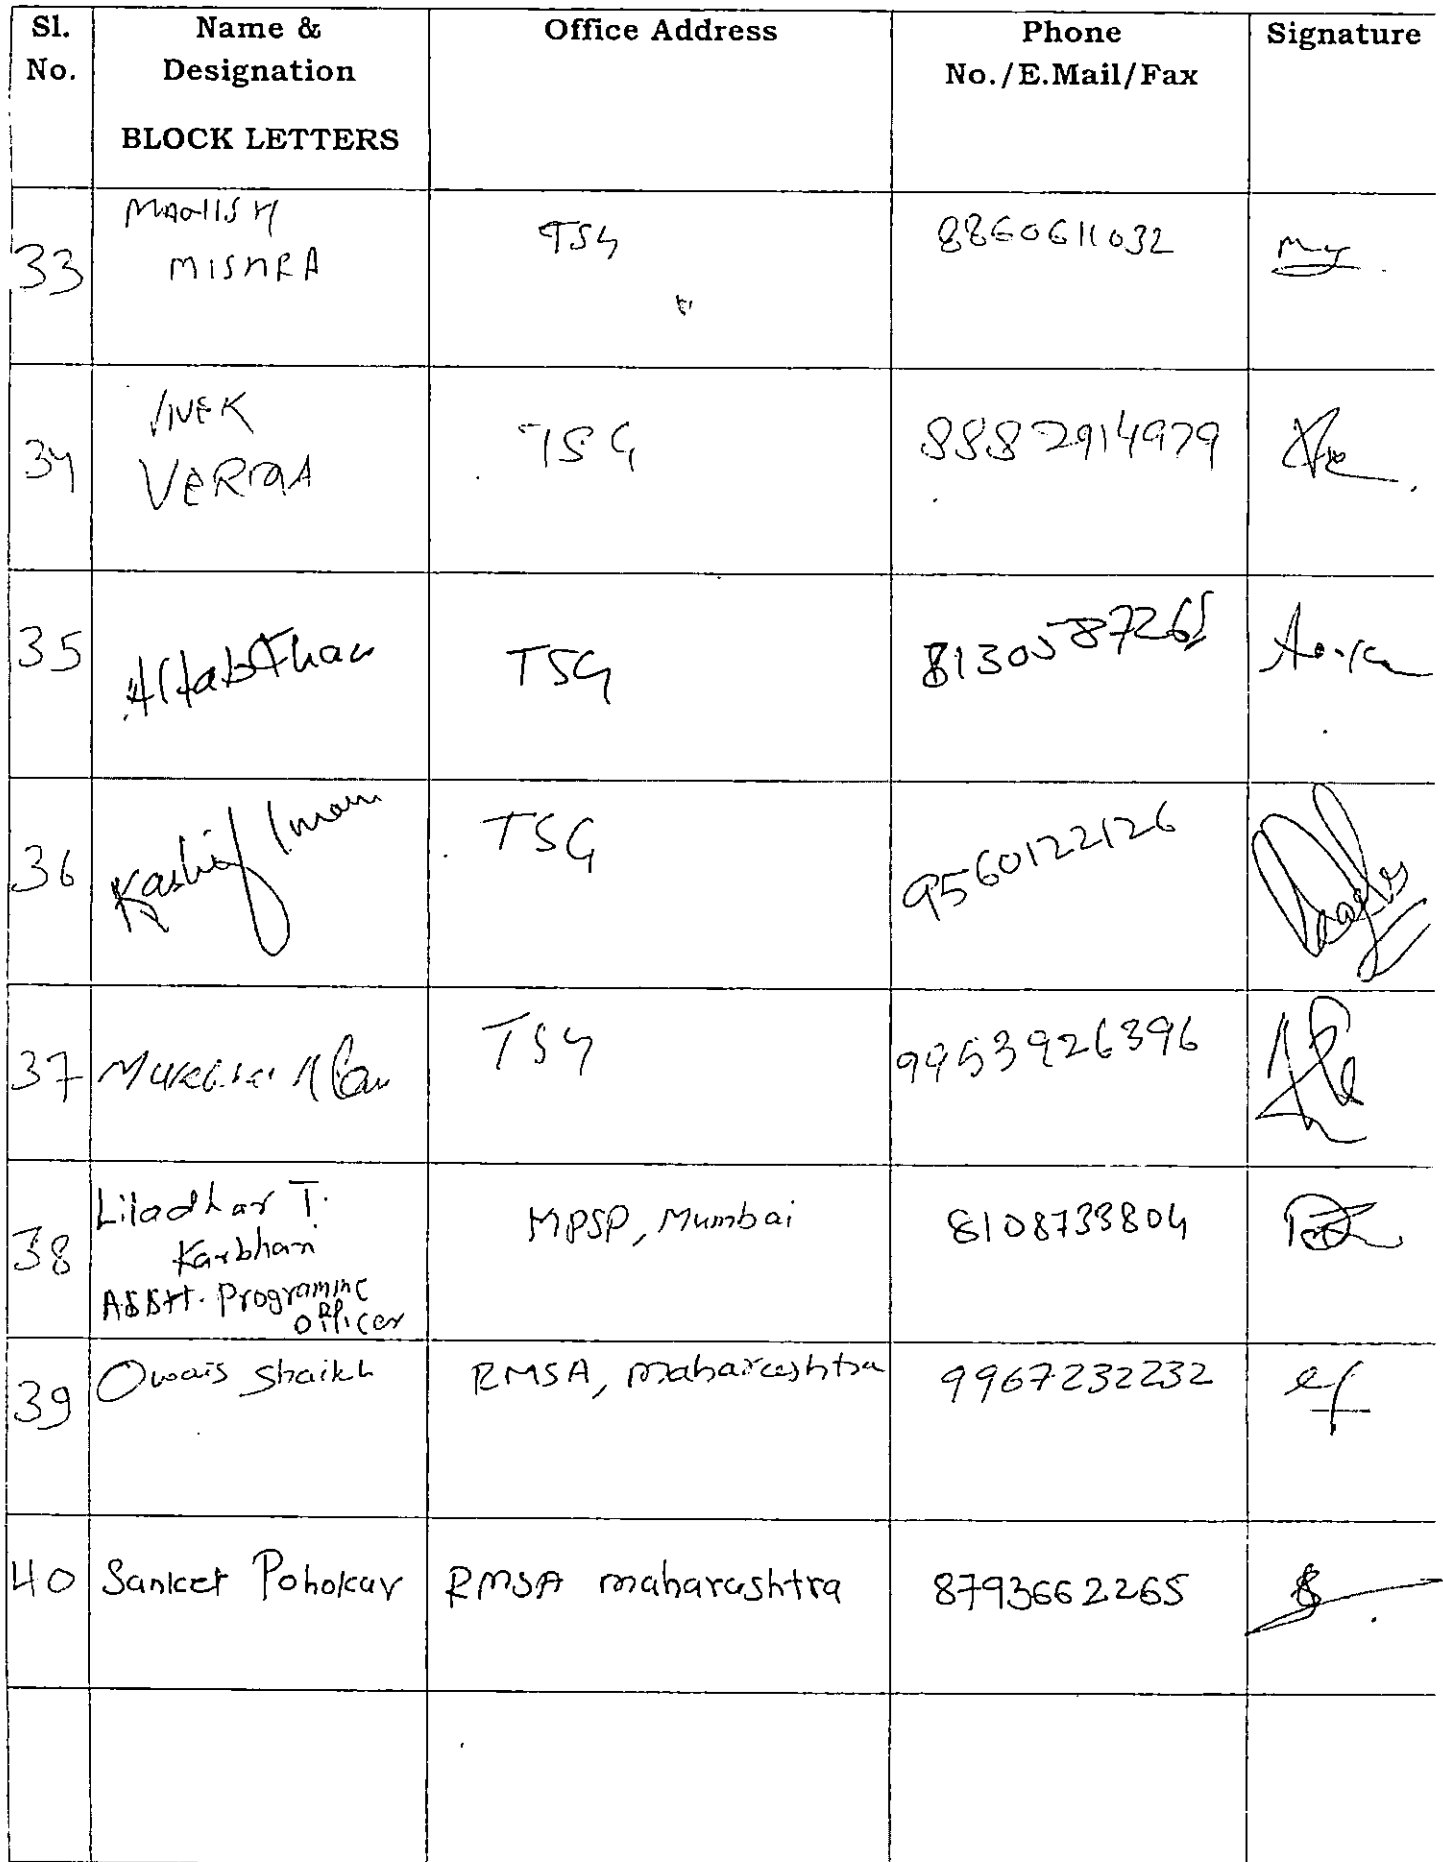 Sl. No.
Name & Designation
BLOCK LETTERS
Office Address
Phone No./E.Mail/Fax
Signature
33
MANISH
MISHRA
TSG
8860611032
34
VIVEK
VERMA
TSG
8882914979
35
Altab Khan
TSG
8130587265
36
Kashif Imam
TSG
9560122126
37
TSG
9953926396
38
Liladhar T.
Karbhari
Asstt. Programme
Officer
MPSP, Mumbai
8108733804
39
Owais Shaikh
RMSA, maharashtra
9967232232
40
Sanket Pohokar
RMSA maharashtra
8793662265